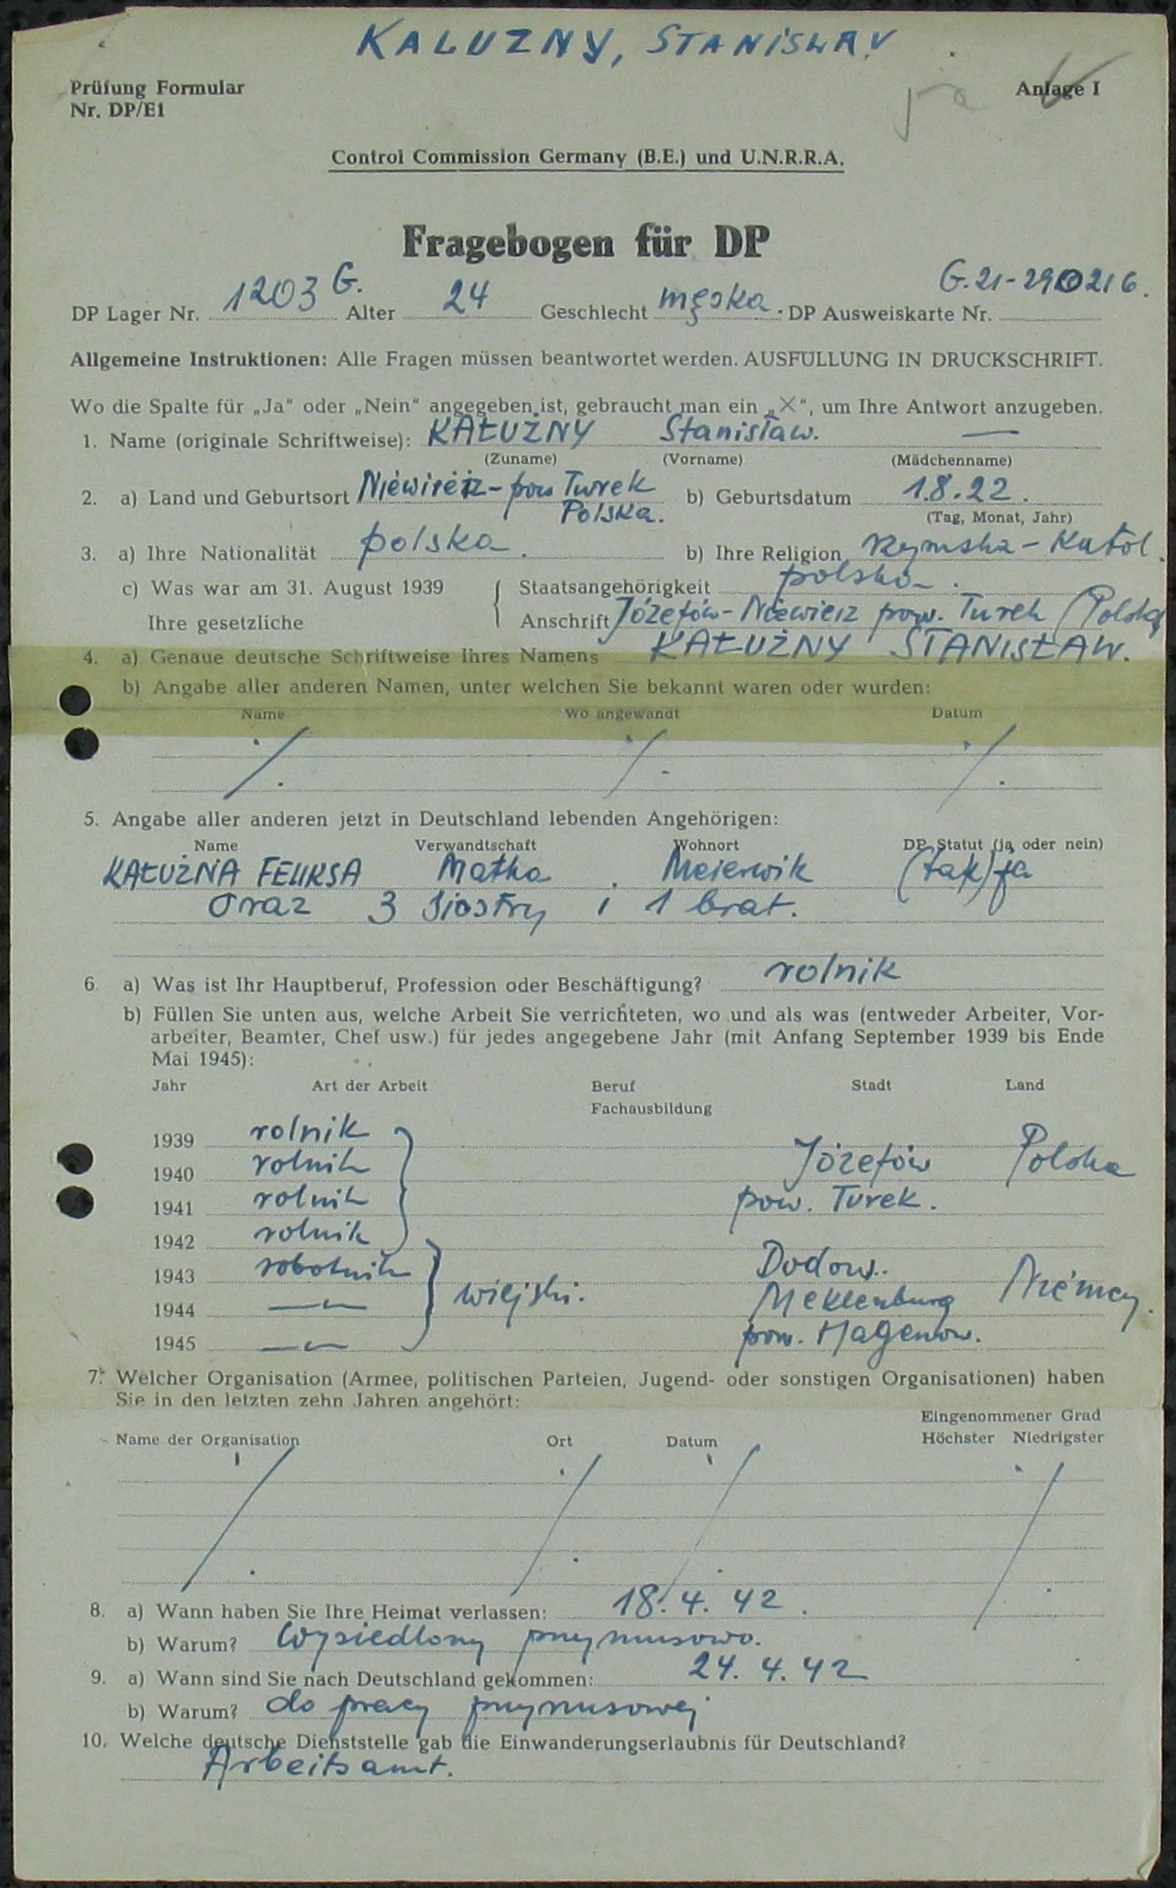 KALUZNY, STANISLAV
Prüfung Formular
Nr. DP/E1
ja
Anlage I
Control Commission Germany (B.E.) und U.N.R.R.A.
Fragebogen für DP
DP Lager Nr. 1203 G. Alter 24 Geschlecht męska. DP Ausweiskarte Nr. G.21-290216.
Allgemeine Instruktionen: Alle Fragen müssen beantwortet werden. AUSFÜLLUNG IN DRUCKSCHRIFT.
Wo die Spalte für „Ja“ oder „Nein“ angegeben ist, gebraucht man ein „X“, um Ihre Antwort anzugeben.
1. Name (originale Schriftweise): KAŁUŻNY Stanisław. —
(Zuname) (Vorname) (Mädchenname)
2. a) Land und Geburtsort Niewierz - pow Turek b) Geburtsdatum 1.8.22.
Polska. (Tag, Monat, Jahr)
3. a) Ihre Nationalität polska. b) Ihre Religion rzymska - Katol.
c) Was war am 31. August 1939 Staatsangehörigkeit polska.
Ihre gesetzliche Anschrift Józefów - Niewierz pow. Turek (Polska)
4. a) Genaue deutsche Schriftweise Ihres Namens KAŁUŻNY STANISŁAW.
b) Angabe aller anderen Namen, unter welchen Sie bekannt waren oder wurden:
Name Wo angewandt Datum
5. Angabe aller anderen jetzt in Deutschland lebenden Angehörigen:
Name Verwandtschaft Wohnort DP Statut (ja oder nein)
KAŁUŻNA FELIKSA Matka Meierwik (tak) ja
oraz 3 siostry i 1 brat.
6. a) Was ist Ihr Hauptberuf, Profession oder Beschäftigung? rolnik
b) Füllen Sie unten aus, welche Arbeit Sie verrichteten, wo und als was (entweder Arbeiter, Vor-
arbeiter, Beamter, Chef usw.) für jedes angegebene Jahr (mit Anfang September 1939 bis Ende
Mai 1945):
Jahr Art der Arbeit Beruf Stadt Land
Fachausbildung
1939 rolnik
1940 rolnik Józefów Polska
1941 rolnik pow. Turek.
1942 rolnik
1943 robotnik Dodow.
1944 —"— wiejski. Meklenburg Niemcy.
1945 —"— pow. Hagenow.
7. Welcher Organisation (Armee, politischen Parteien, Jugend- oder sonstigen Organisationen) haben
Sie in den letzten zehn Jahren angehört:
Eingenommener Grad
Name der Organisation Ort Datum Höchster Niedrigster
8. a) Wann haben Sie Ihre Heimat verlassen: 18. 4. 42.
b) Warum? Wysiedlony przymusowo.
9. a) Wann sind Sie nach Deutschland gekommen: 24. 4. 42
b) Warum? do pracy przymusowej
10. Welche deutsche Dienststelle gab die Einwanderungserlaubnis für Deutschland?
Arbeitsamt.